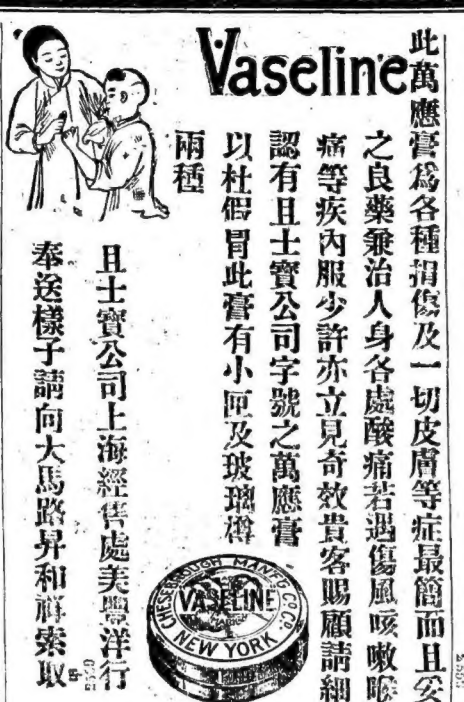 Vaseline
此萬應膏爲各種損傷及一切皮膚等症最簡而且妥
之良藥兼治人身各處酸痛若遇傷風咳嗽喉
痛等疾內服少許亦立見奇效貴客賜顧請細
認有且士寶公司字號之萬應膏
以杜假冒此膏有小匣及玻璃樽
兩種
且士寶公司上海經售處美豐洋行
奉送樣子請向大馬路昇和祥索取
CHESEBROUGH MAN'F'G CO. CO.
VASELINE
NEW YORK